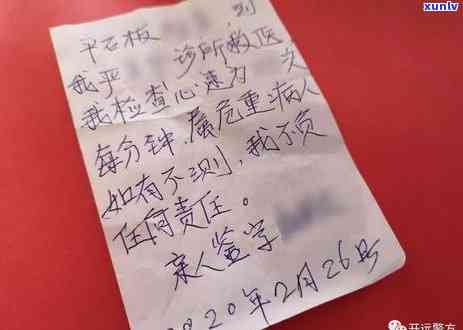 平石板 到
我严 诊所救医
我检查心速为 次
每分钟,属危重病人
如有不测,我不负
任何责任。
亲人签字
2020年2月26号
xunlv.
开远警方